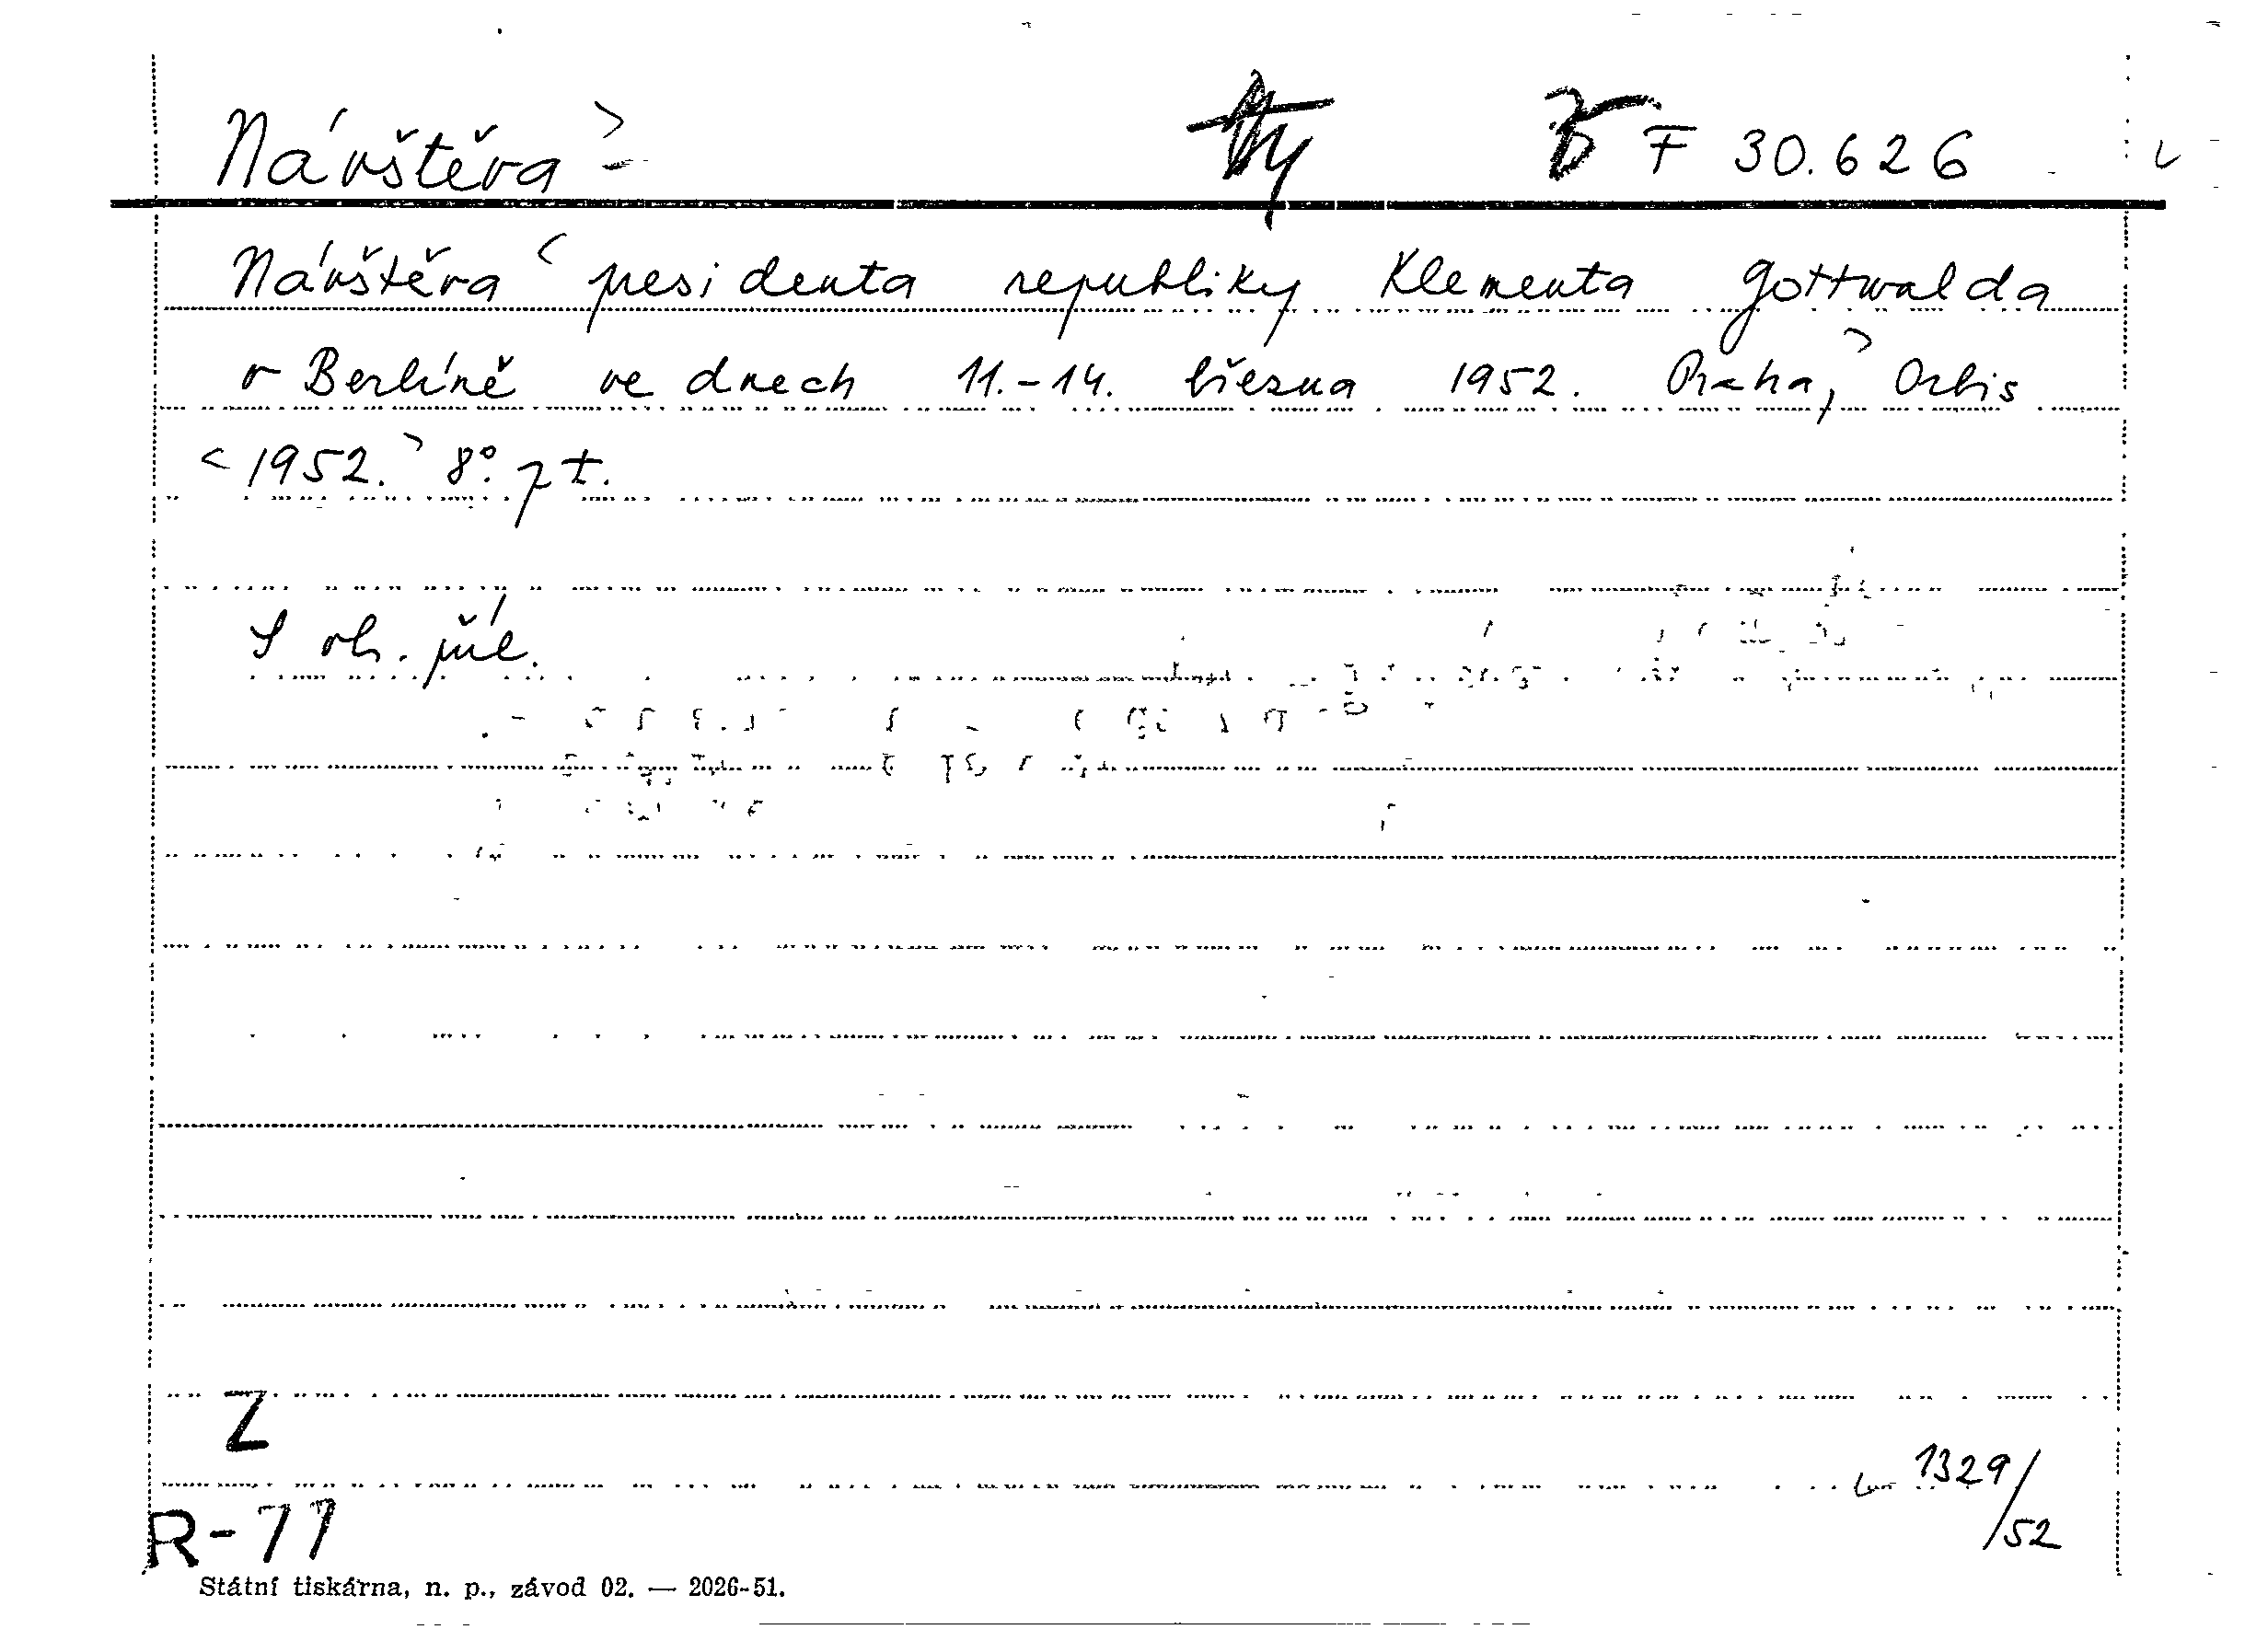 Návštěva > - F 30.626
Návštěva < presidenta republiky Klementa Gottwalda
v Berlíně ve dnech 11.-14. března 1952. Praha, > Orbis
< 1952. > 8°. 7 t.
S ob. příl.
Z
1329/52
R-77
Státní tiskárna, n. p., závod 02. — 2026-51.